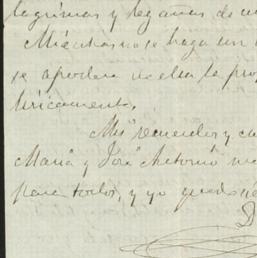 lagrimas y legañas de
Mientras no se haga un
se apodera de ella la
líricamente.
Mis recuerdos y
Maria y José Antonio
para todos, y yo quedo